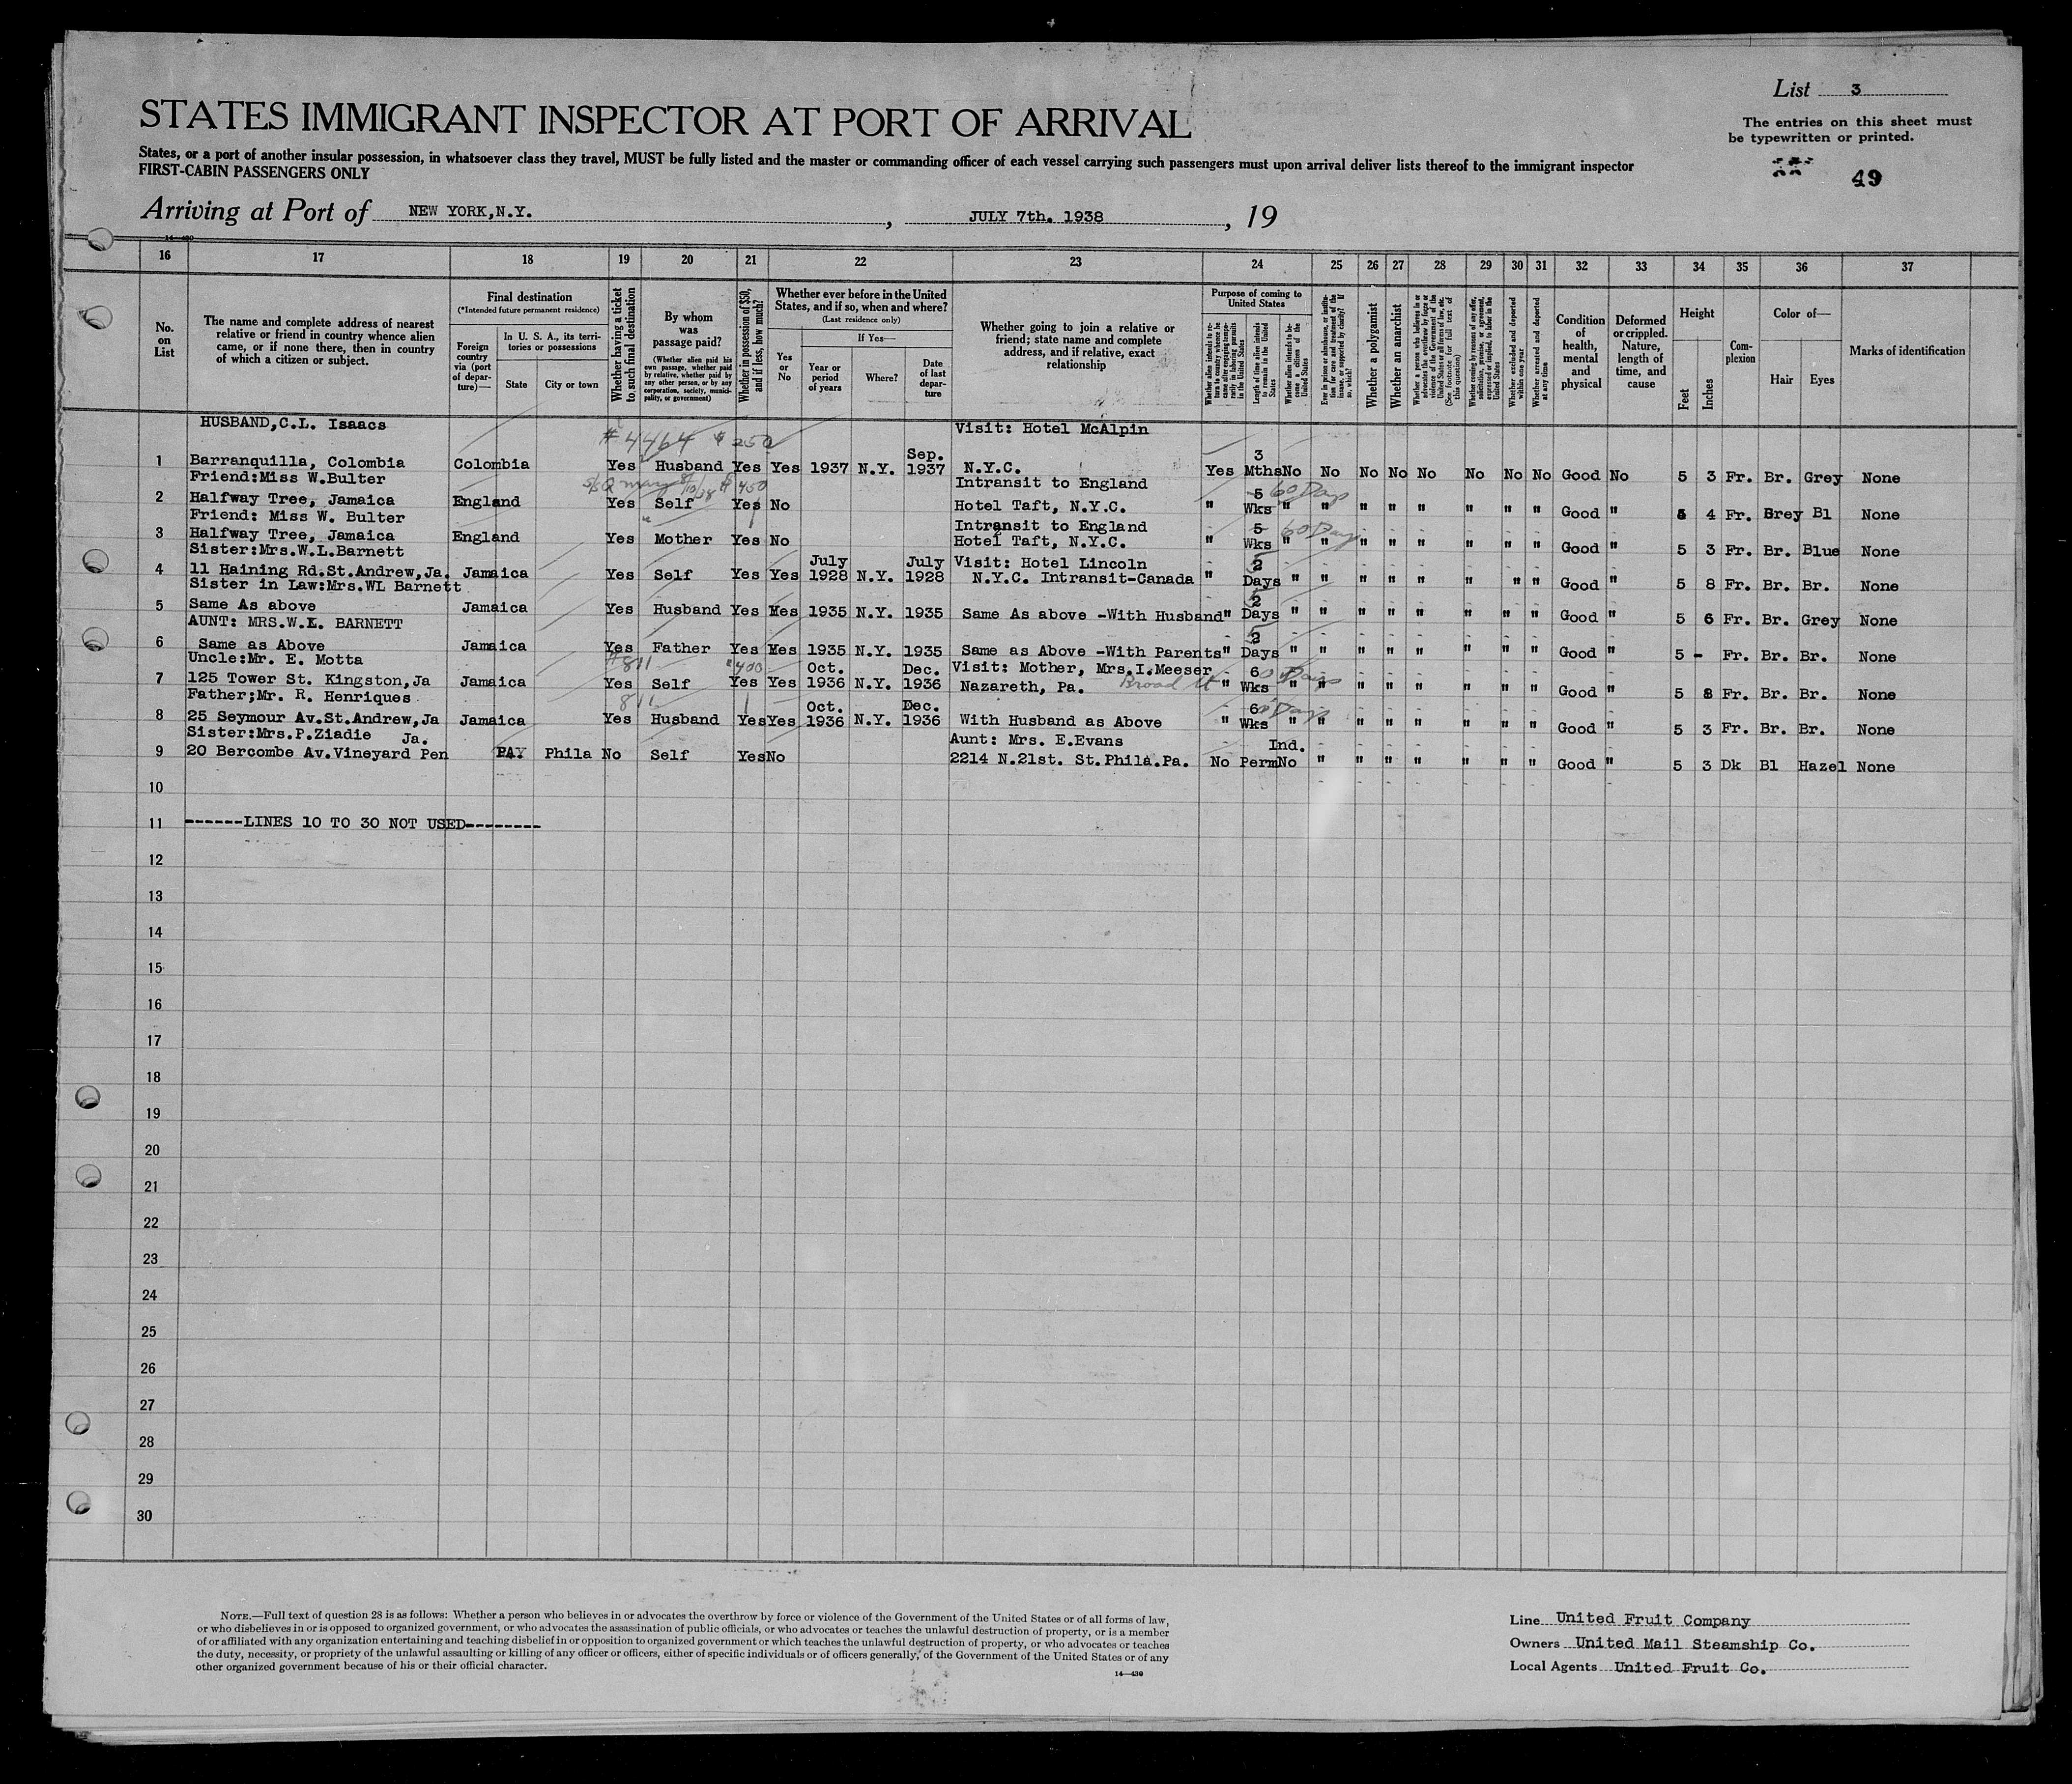 List 3
STATES IMMIGRANT INSPECTOR AT PORT OF ARRIVAL
The entries on this sheet must
be typewritten or printed.
States, or a port of another insular possession, in whatsoever class they travel, MUST be fully listed and the master or commanding officer of each vessel carrying such passengers must upon arrival deliver lists thereof to the immigrant inspector
FIRST-CABIN PASSENGERS ONLY
49
Arriving at Port of NEW YORK,N.Y. , JULY 7th. 1938 , 19
16 17 18 19 20 21 22 23 24 25 26 27 28 29 30 31 32 33 34 35 36 37
No. on List
The name and complete address of nearest
relative or friend in country whence alien
came, or if none there, then in country
of which a citizen or subject.
Final destination
(*Intended future permanent residence)
Foreign country via (port of departure)—
In U. S. A., its territories or possessions
State City or town
Whether having a ticket to such final destination
By whom was passage paid?
(Whether alien paid his own passage, whether paid by relative, whether paid by any other person, or by any corporation, society, municipality, or government)
Whether in possession of $50, and if less, how much?
Whether ever before in the United States, and if so, when and where?
(Last residence only)
Yes or No
If Yes—
Year or period of years
Where?
Date of last departure
Whether going to join a relative or
friend; state name and complete
address, and if relative, exact
relationship
Purpose of coming to United States
Length of time alien intends to remain in the United States
Whether alien intends to become a citizen of the United States
Whether a polygamist
Whether an anarchist
Whether excluded and deported within one year
Whether arrested and deported at any time
Condition of health, mental and physical
Deformed or crippled. Nature, length of time, and cause
Height
Feet Inches
Complexion
Color of—
Hair Eyes
Marks of identification
HUSBAND,C.L. Isaacs Visit: Hotel McAlpin
#4464 $250
Sep. 3
1 Barranquilla, Colombia Colombia Yes Husband Yes Yes 1937 N.Y. 1937 N.Y.C. Yes Mths No No No No No No No No Good No 5 3 Fr. Br. Grey None
Friend:Miss W.Bulter Intransit to England
$450 5 60 Days
2 Halfway Tree, Jamaica England Yes Self Yes No Hotel Taft, N.Y.C. " Wks " " " " " " " " Good " 5 4 Fr. Grey Bl None
Friend: Miss W. Bulter Intransit to England
5 60 Days
3 Halfway Tree, Jamaica England Yes Mother Yes No Hotel Taft, N.Y.C. " Wks " " " " " " " " Good " 5 3 Fr. Br. Blue None
Sister:Mrs.W.L.Barnett July July Visit: Hotel Lincoln 2
4 11 Haining Rd.St.Andrew,Ja. Jamaica Yes Self Yes Yes 1928 N.Y. 1928 N.Y.C. Intransit-Canada " Days " " " " " " " " Good " 5 8 Fr. Br. Br. None
Sister in Law:Mrs.WL Barnett 2
5 Same As above Jamaica Yes Husband Yes Yes 1935 N.Y. 1935 Same As above -With Husband " Days " " " " " " " " Good " 5 6 Fr. Br. Grey None
AUNT: MRS.W.L. BARNETT 2
6 Same as Above Jamaica Yes Father Yes Yes 1935 N.Y. 1935 Same as Above -With Parents " Days " " " " " " " " Good " 5 - Fr. Br. Br. None
Uncle:Mr. E. Motta #811 $400 Oct. Dec. Visit: Mother, Mrs.I.Meeser 6
7 125 Tower St. Kingston,Ja Jamaica Yes Self Yes Yes 1936 N.Y. 1936 Nazareth, Pa. Broad St " Wks " " " " " " " " Good " 5 8 Fr. Br. Br. None
Father;Mr. R. Henriques 811 Oct. Dec. 6
8 25 Seymour Av.St.Andrew,Ja Jamaica Yes Husband Yes Yes 1936 N.Y. 1936 With Husband as Above " Wks " " " " " " " " Good " 5 3 Fr. Br. Br. None
Sister:Mrs.P.Ziadie Ja. Aunt: Mrs. E.Evans Ind.
9 20 Bercombe Av.Vineyard Pen PAY Phila No Self Yes No 2214 N.21st. St.Phila.Pa. No Perm No " " " " " " " Good " 5 3 Dk Bl Hazel None
10
11 ------LINES 10 TO 30 NOT USED--------
12
13
14
15
16
17
18
19
20
21
22
23
24
25
26
27
28
29
30
NOTE.—Full text of question 28 is as follows: Whether a person who believes in or advocates the overthrow by force or violence of the Government of the United States or of all forms of law,
or who disbelieves in or is opposed to organized government, or who advocates the assassination of public officials, or who advocates or teaches the unlawful destruction of property, or is a member
of or affiliated with any organization entertaining and teaching disbelief in or opposition to organized government or which teaches the unlawful destruction of property, or who advocates or teaches
the duty, necessity, or propriety of the unlawful assaulting or killing of any officer or officers, either of specific individuals or of officers generally, of the Government of the United States or of any
other organized government because of his or their official character.
14—430
Line United Fruit Company
Owners United Mail Steamship Co.
Local Agents United Fruit Co.